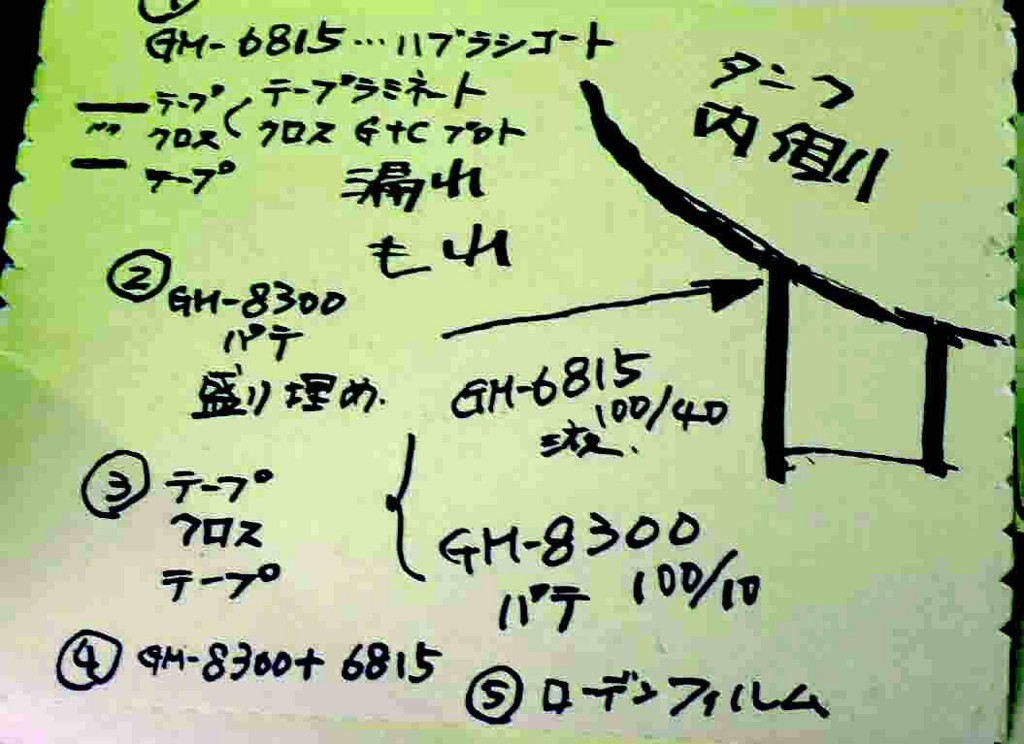 ①
GM-6815…ハブラシコート
テープ テープラミネート
〃 クロス クロス G+C プロト
テープ
漏れ
モレ
タンク
内側
② GM-8300
パテ
盛り埋め.
GM-6815
100/40
GM-8300
パテ 100/10
③ テープ
クロス
テープ
④ GM-8300+6815
⑤ ローデンフィルム